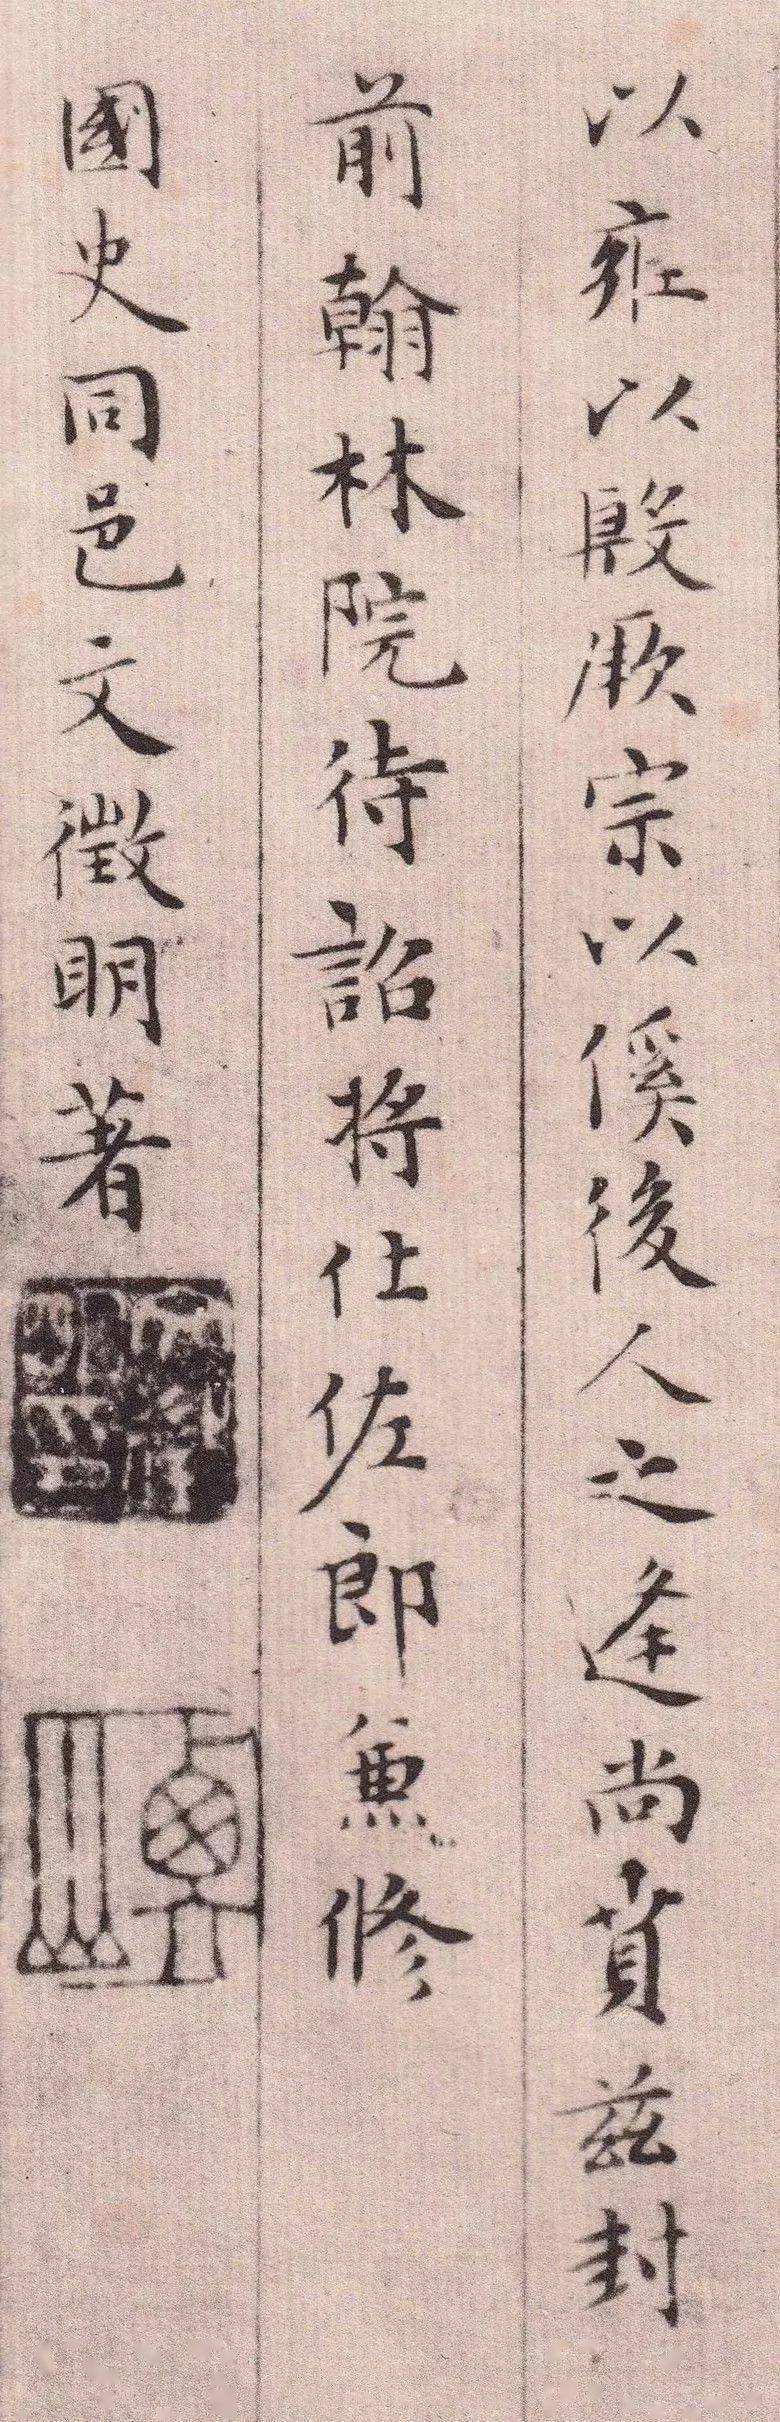 以雍以殷厥宗以傒後人之逢尚賁茲封
前翰林院待詔將仕佐郎兼修
國史同邑文徵明著